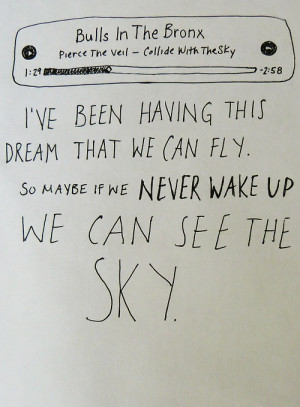 Bulls In The Bronx
Pierce The Veil – Collide With The Sky
1:29 -2:58
I'VE BEEN HAVING THIS
DREAM THAT WE CAN FLY.
SO MAYBE IF WE NEVER WAKE UP
WE CAN SEE THE
SKY.